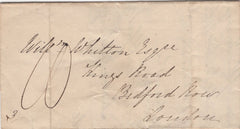 Will^m Whitton Esq^re
Kings Road
Bedford Row
London